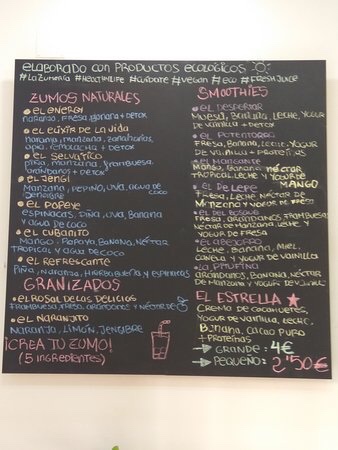 ELABORADO CON PRODUCTOS ECOLÓGICOS
#LAZUMERÍA #HEALTHYLIFE #CUÍDATE #VEGAN #ECO #FRESHJUICE
ZUMOS NATURALES
EL ENERGY
NARANJO, FRESA, BANANA + DETOX
EL ELIXIR DE LA VIDA
NARANJA, MANZANA, ZANAHORIAS,
APIO, REMOLACHA + DETOX
EL SELVATICO
PIÑA, MANZANA, FRAMBUESA,
ARANDANOS + DETOX
EL JENGI
MANZANA, PEPINO, UVA, AGUA DE
JENGIBRE
EL POPEYE
ESPINACAS, PIÑA, UVA, BANANA
Y AGUA DE COCO
EL CUBANITO
MANGO, PAPAYA, BANANA, NÉCTAR
TROPICAL Y AGUA DE COCO
EL REFRESCANTE
PIÑA, NARANJA, HIERBABUENA Y ESPINACAS
GRANIZADOS
EL ROSAL DE LAS DELICIOS
FRAMBUESA, FRESA, ARANDANOS Y NÉCTAR DE
EL NARANJITO
NARANJA, LIMÓN, JENGIBRE
¡CREA TU ZUMO!
(5 INGREDIENTES)
SMOOTHIES
EL DESPERTAR
MUESLI, BANANA, LECHE, YOGUR
DE VAINILLA + DETOX
EL POTENTORRO
FRESA, BANANA, LECHE, YOGUR
DE VAINILLA + PROTEINAS
EL MANGANTE
MANGO, BANANA, NÉCTAR
TROPICAL, LECHE Y YOGUR DE
MANGO
EL DE LEPE
FRESA, LECHE, NÉCTAR DE
MANZANA Y YOGUR DE FRESA
EL DEL BOSQUE
FRESA, ARANDANOS, FRAMBUESAS
NÉCTAR DE MANZANA, LECHE
Y YOGUR DE FRESA
LECHE, BANANA, MIEL,
CANELA Y YOGUR DE VAINILLA
LA PITUFINA
ARANDANOS, BANANA, NÉCTAR
DE MANZANA Y YOGUR DE VAINILLA
EL ESTRELLA
CREMA DE CACAHUETES,
YOGUR DE VAINILLA, LECHE,
BANANA, CACAO PURO
+ PROTEINAS
→ GRANDE: 4€
→ PEQUEÑO: 2'50€